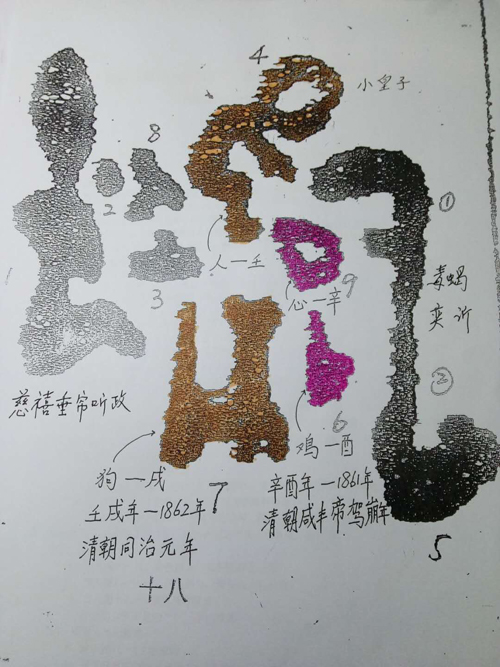 4
小皇子
8
①
2
人一壬
3
心一辛
9
毒蝎
奕䜣
②
慈禧垂帘听政
6
鸡一酉
狗一戌
辛酉年一1861年
壬戌年一1862年
7
清朝咸丰帝驾崩年
清朝同治元年
5
十八